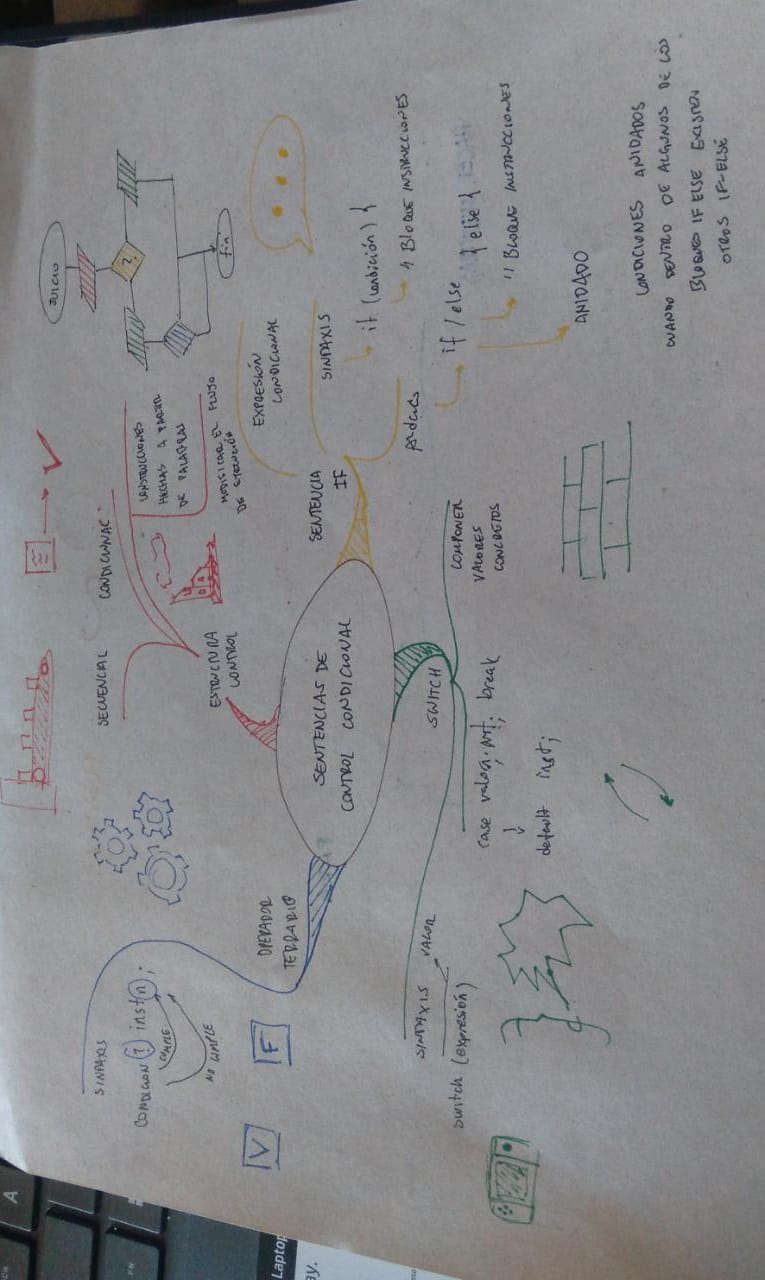 SENTENCIAS DE
CONTROL CONDICIONAL
ESTRUCTURA
CONTROL
SECUENCIAL
CONDICIONAL
CONSTRUCCIONES
HECHAS A PARTIR
DE PALABRAS
MODIFICAR EL FLUJO
DE EJECUCIÓN
INICIO
?
fin
SENTENCIA
IF
EXPRESIÓN
CONDICIONAL
SINTAXIS
if (condición) {
BLOQUE INSTRUCCIONES
if / else
} else {
// BLOQUE INSTRUCCIONES
ANIDADO
CONDICIONES ANIDADOS
CUANDO DENTRO DE ALGUNOS DE LOS
BLOQUES IF ELSE EXISTEN
OTROS IF-ELSE
SWITCH
COMPONER
VALORES
CONCRETOS
case valor: break
default inst;
SINTAXIS
VALOR
switch (expresión)
OPERADOR
TERRARIO
SINTAXIS
CONDICION
CUMPLE
NO CUMPLE
V
F
A
Laptop
ay.